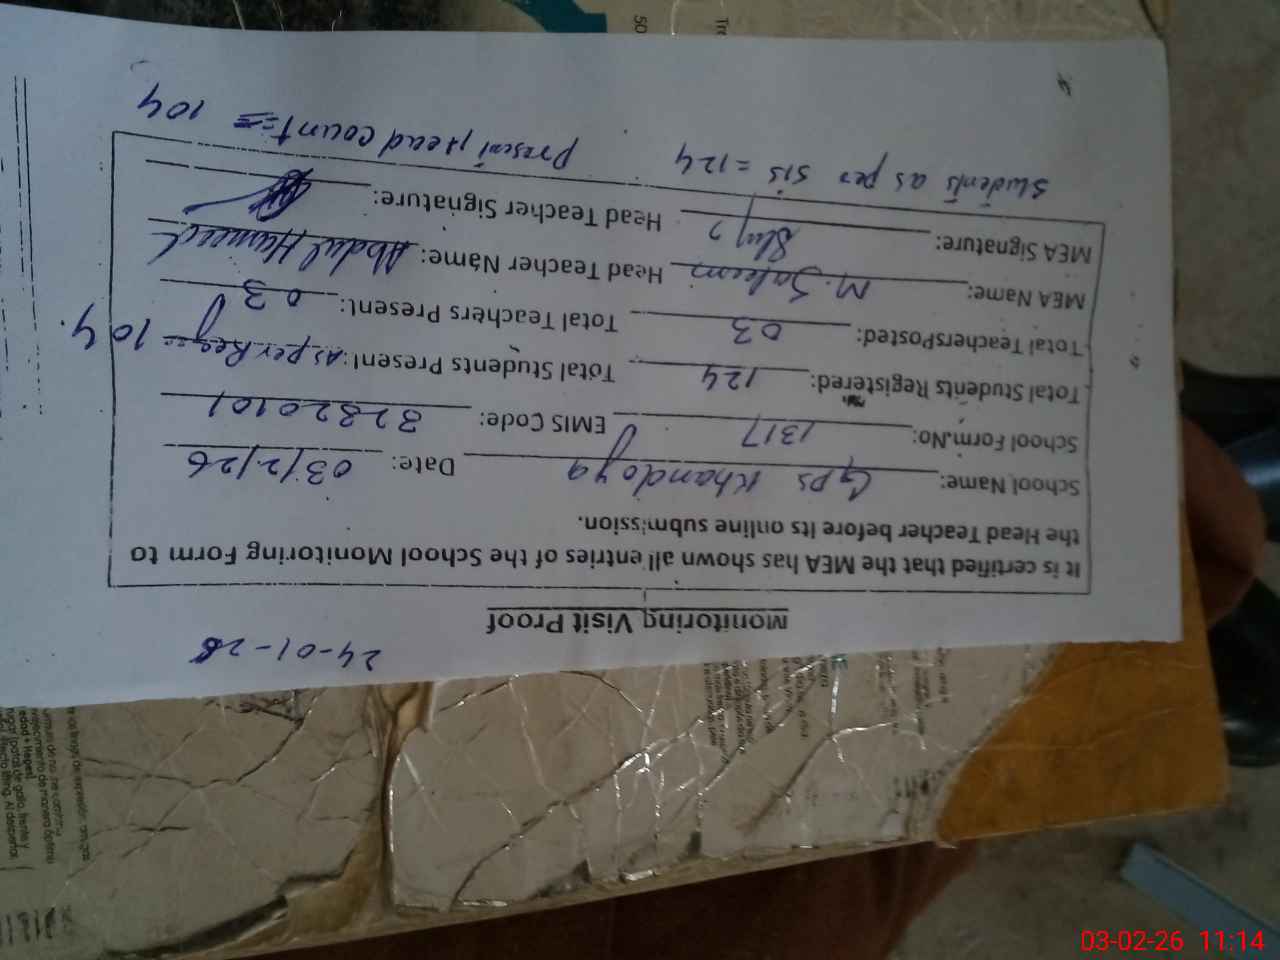 24-01-26
Monitoring Visit Proof
It is certified that the MEA has shown all entries of the School Monitoring Form to
the Head Teacher before its online submission.
School Name: GPS Khandoya Date: 03/2/26
School Form No: 1317 EMIS Code: 32320101
Total Students Registered: 124 Total Students Present: As per Reg = 104
Total Teachers Posted: 03 Total Teachers Present: 03
MEA Name: M. Saleem Head Teacher Name: Abdul Hameed
MEA Signature: Head Teacher Signature:
Students as per SIS = 124 Present Head count = 104
03-02-26 11:14